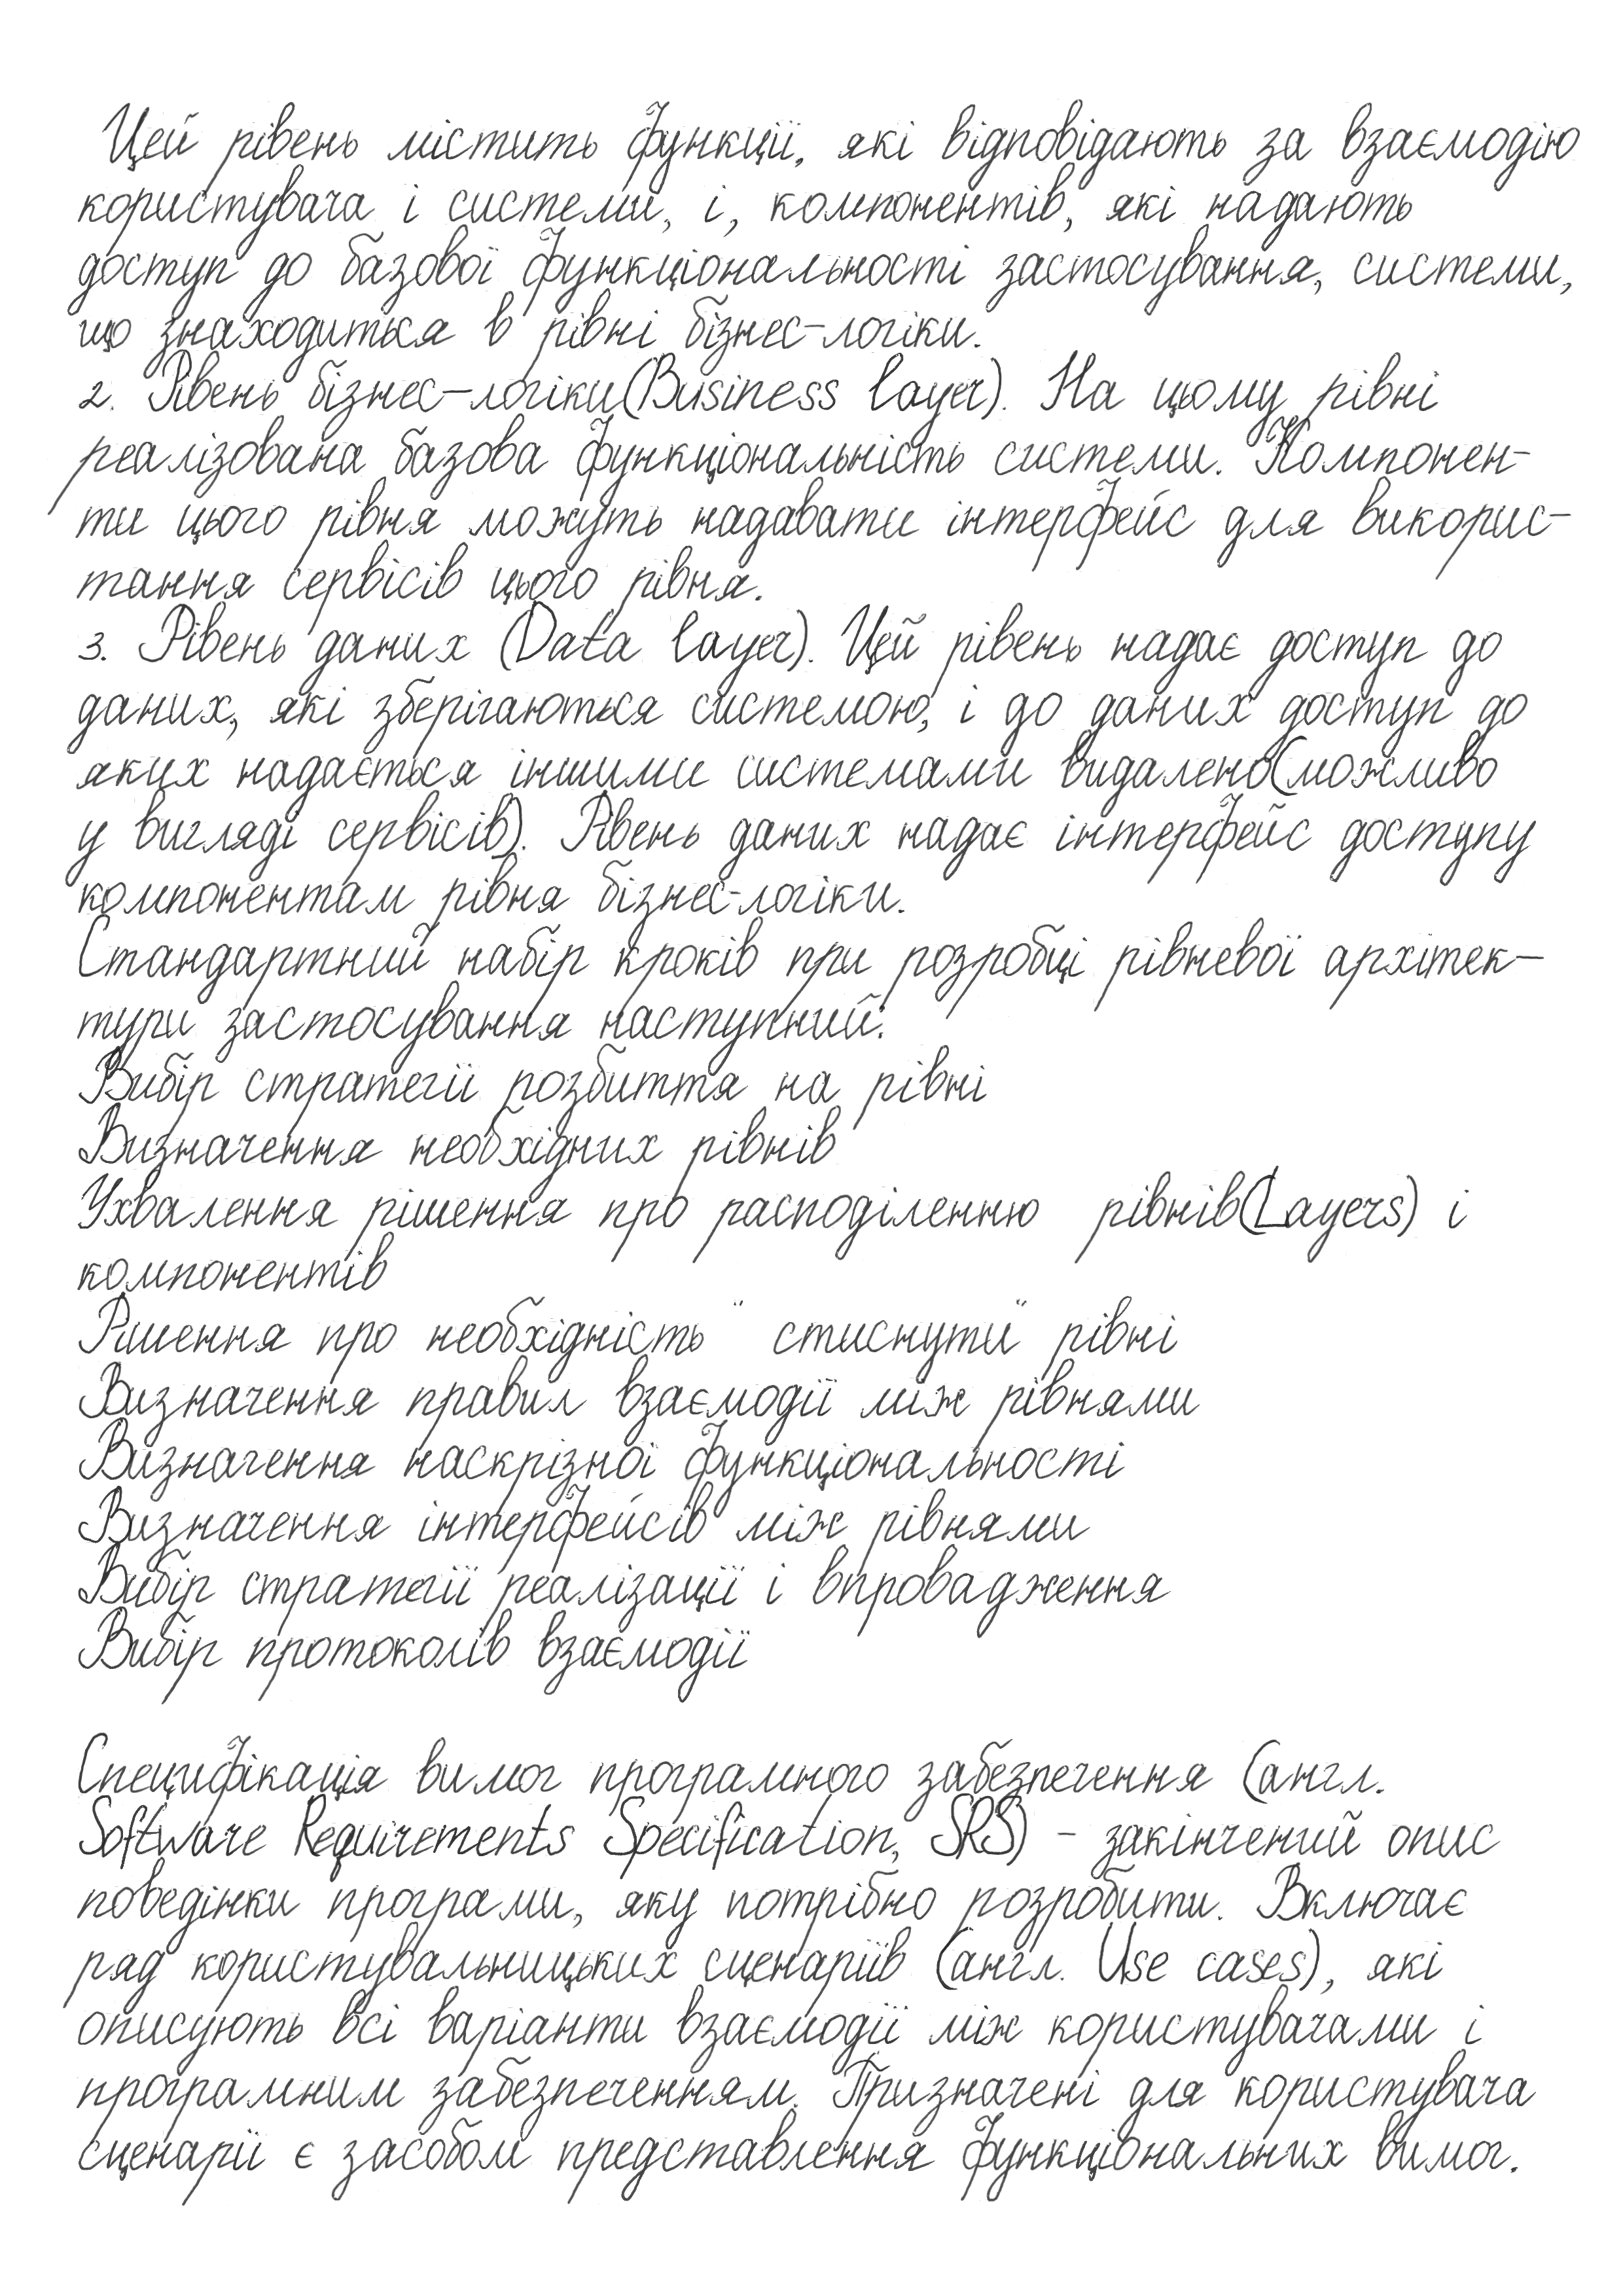 Цей рівень містить функції, які відповідають за взаємодію
користувача і системи, і, компонентів, які надають
доступ до базової функціональності застосування, системи,
що знаходиться в рівні бізнес-логіки.
2. Рівень бізнес-логіки(Business layer). На цьому рівні
реалізована базова функціональність системи. Компонен-
ти цього рівня можуть надавати інтерфейс для викорис-
тання сервісів цього рівня.
3. Рівень даних (Data layer). Цей рівень надає доступ до
даних, які зберігаються системою, і до даних доступ до
яких надається іншими системами видалено(можливо
у вигляді сервісів). Рівень даних надає інтерфейс доступу
компонентам рівня бізнес-логіки.
Стандартний набір кроків при розробці рівневої архітек-
тури застосування наступний:
Вибір стратегії розбиття на рівні
Визначення необхідних рівнів
Ухвалення рішення про расподіленню рівнів(Layers) і
компонентів
Рішення про необхідність "стиснути" рівні
Визначення правил взаємодії між рівнями
Визначення наскрізної функціональності
Визначення інтерфейсів між рівнями
Вибір стратегії реалізації і впровадження
Вибір протоколів взаємодії
Специфікація вимог програмного забезпечення (англ.
Software Requirements Specification, SRS) - закінчений опис
поведінки програми, яку потрібно розробити. Включає
ряд користувальницьких сценаріїв (англ. Use cases), які
описують всі варіанти взаємодії між користувачами і
програмним забезпеченням. Призначені для користувача
сценарії є засобом представлення функціональних вимог.